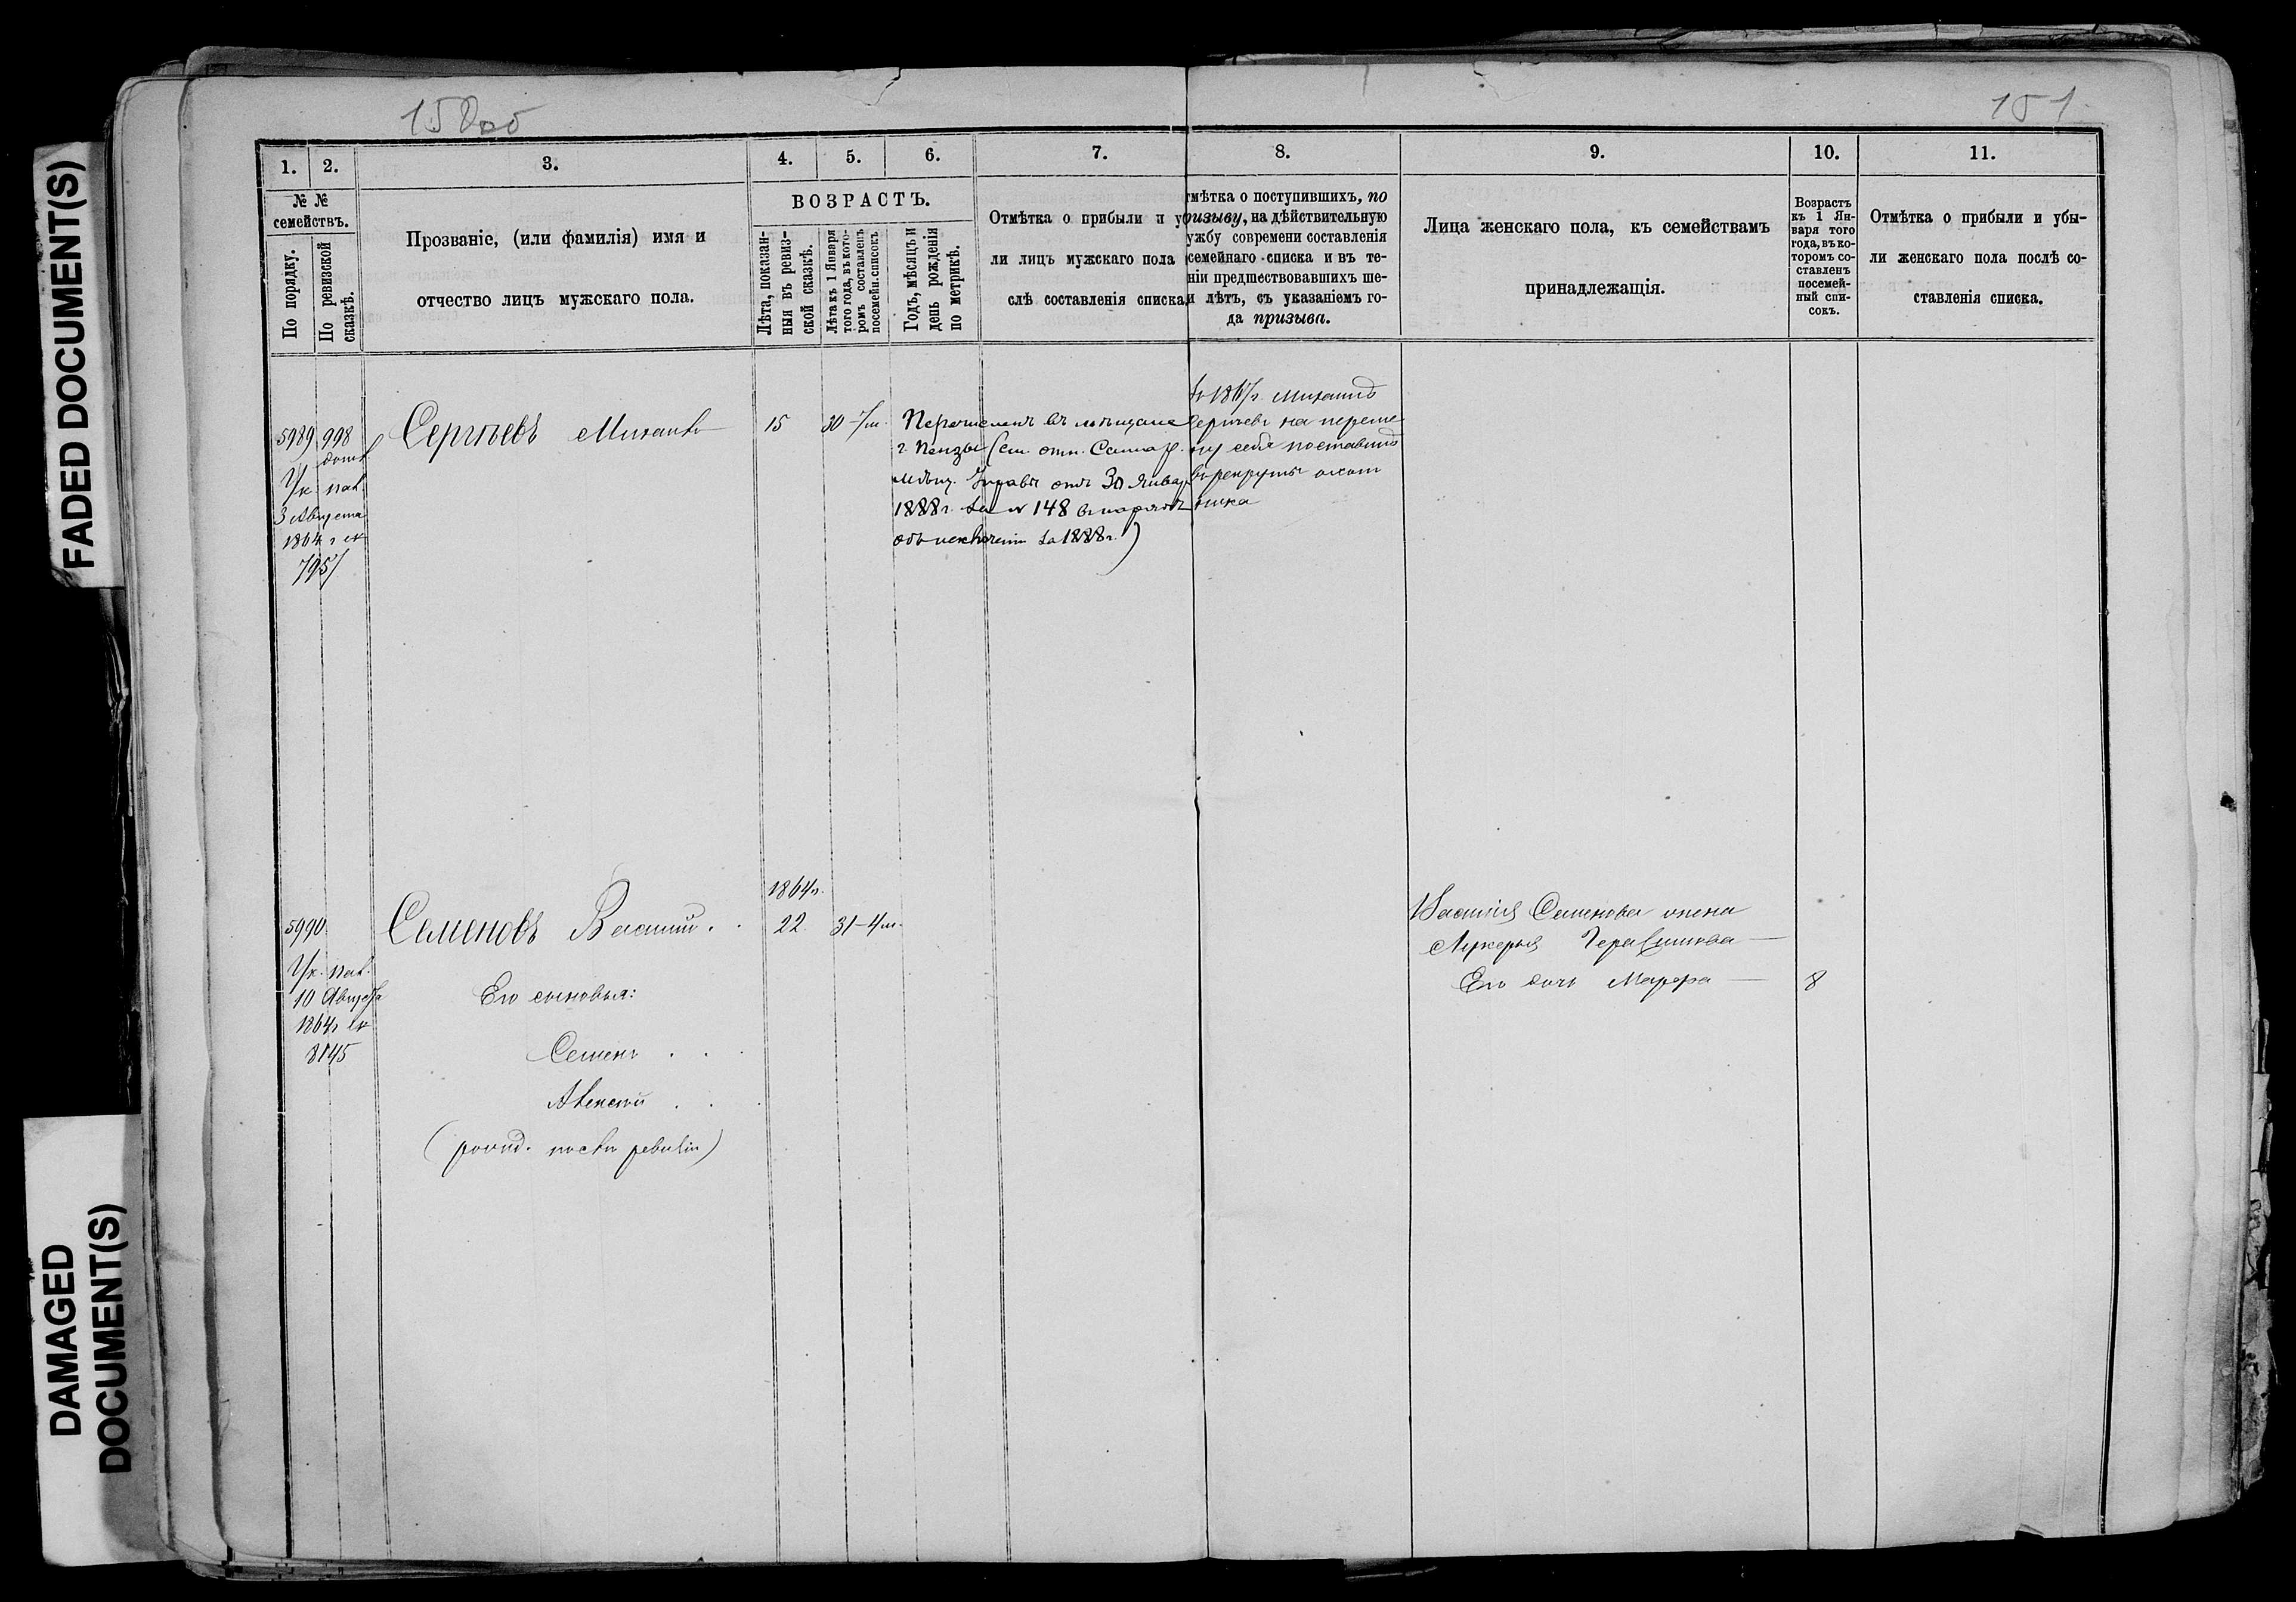 FADED DOCUMENT(S)
DAMAGED
DOCUMENT(S)
150об
151
1.
2.
3.
4.
5.
6.
7.
8.
9.
10.
11.
№ №
семействъ.
По порядку.
По ревизской
сказкѣ.
Прозваніе, (или фамилія) имя и
отчество лицъ мужскаго пола.
ВОЗРАСТЪ.
Лѣта, показан-
ныя въ ревиз-
ской сказкѣ.
Лѣта къ 1 Января
того года, въ кото-
ромъ составленъ
посемейн. списокъ
Годъ, мѣсяцъ и
день рожденія
по метрикѣ.
Отмѣтка о прибыли и у
ли лицъ мужскаго пола
слѣ составленія списка
мѣтка о поступившихъ, по
ризыву, на дѣйствительную
ужбу современи составленія
семейнаго списка и въ те-
ніи предшествовавшихъ ше-
и лѣтъ, съ указаніемъ го-
да призыва.
Лица женскаго пола, къ семействамъ
принадлежащія.
Возрастъ
къ 1 Ян-
варя того
года, въ ко-
торомъ со-
ставленъ
посемей-
ный спи-
сокъ.
Отмѣтка о прибыли и убы-
ли женскаго пола послѣ со-
ставленія списка.
5989
998
Ук. пал.
3 Августа
1864 г №
7957
Сергѣевъ Михаилъ
15
30
Перечисленъ въ мѣщане
г. Пензы (см. отн. Самар.
мѣщ. Управы отъ 30 Январ
1888 г. за № 148 въ нарядѣ
объ исключеніи за 1888 г.)
Михаилъ
Сергѣевъ на переме
ну себя поставилъ
въ рекруты охот
ника
5990
Ук. пал.
10 Августа
1864 г №
8145
Семеновъ Василій
1864 г.
22
31-4 м.
Его сыновья:
Семенъ
Алексѣй
(рожд. послѣ ревизіи)
Василія Семенова жена
Лукерья Герасимова
Его дочь Марфа
8